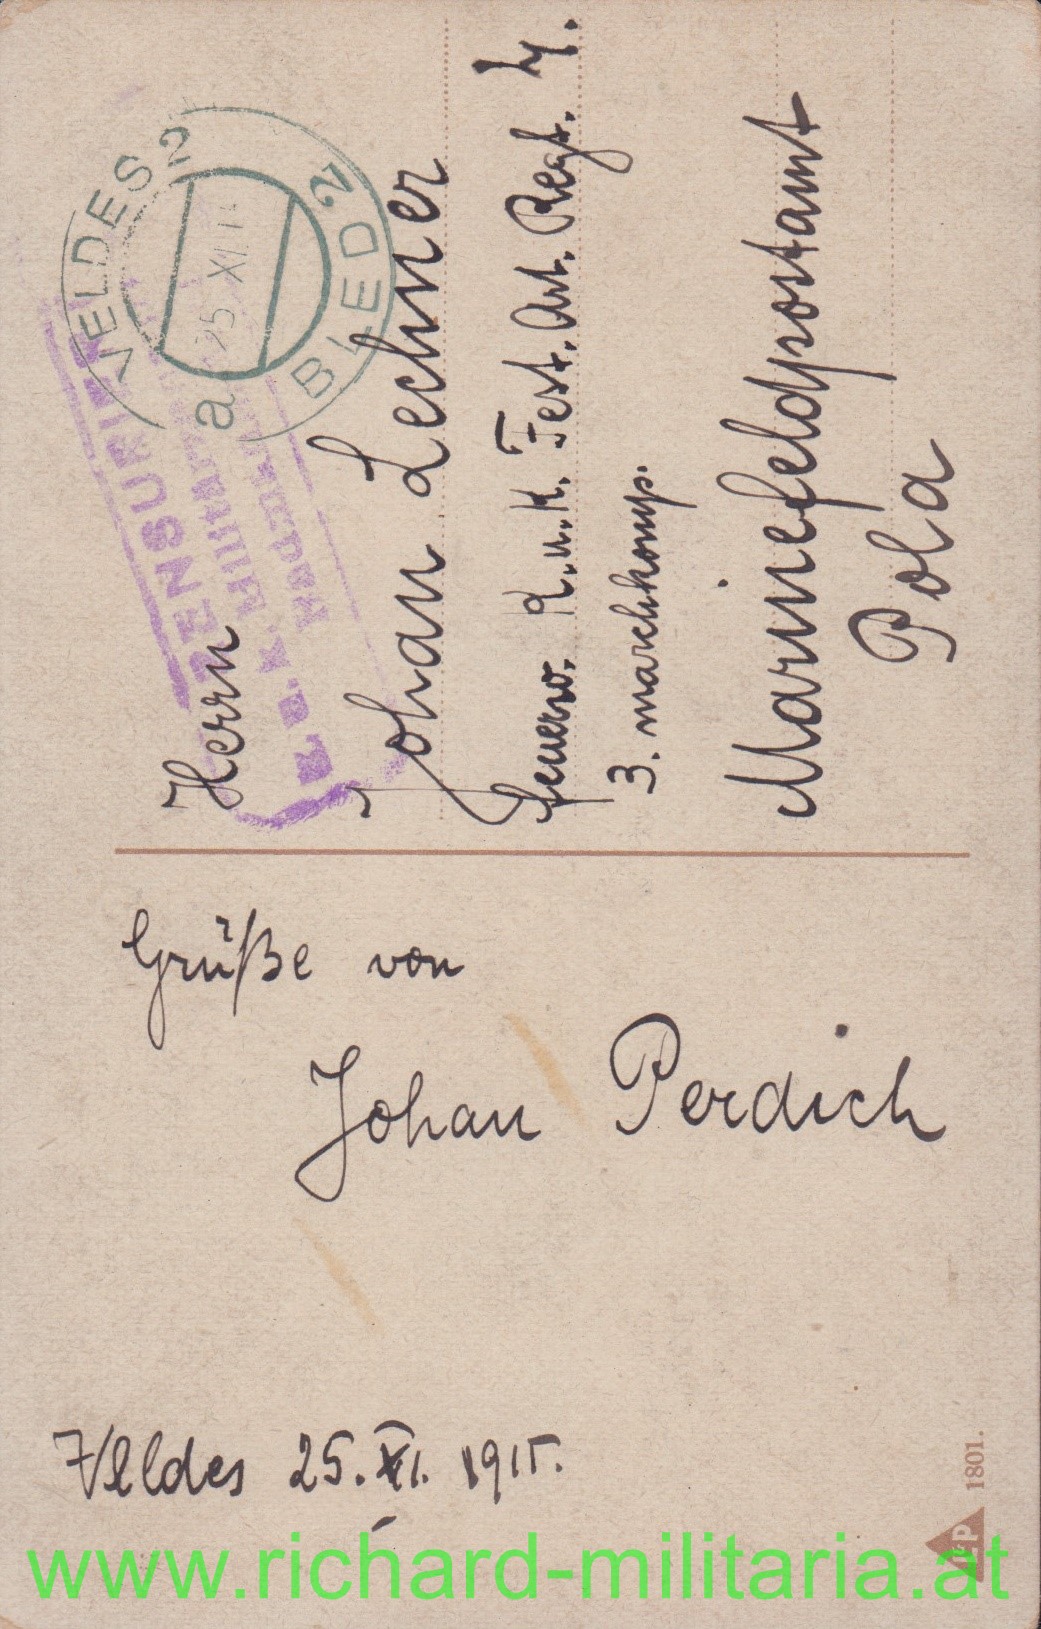 Grüße von
Johan Perdich
Veldes 25. XI. 1915.
Herrn
Johan Lechner
Feuerw. K.u.K. Fest. Art. Regt. 4.
3. marschkomp.
Marinefeldpostamt
Pola
VELDES 2
BLED 2
a
25. XI. 1
ZENSURIERT
K. u. K. Militär
1801.
www.richard-militaria.at